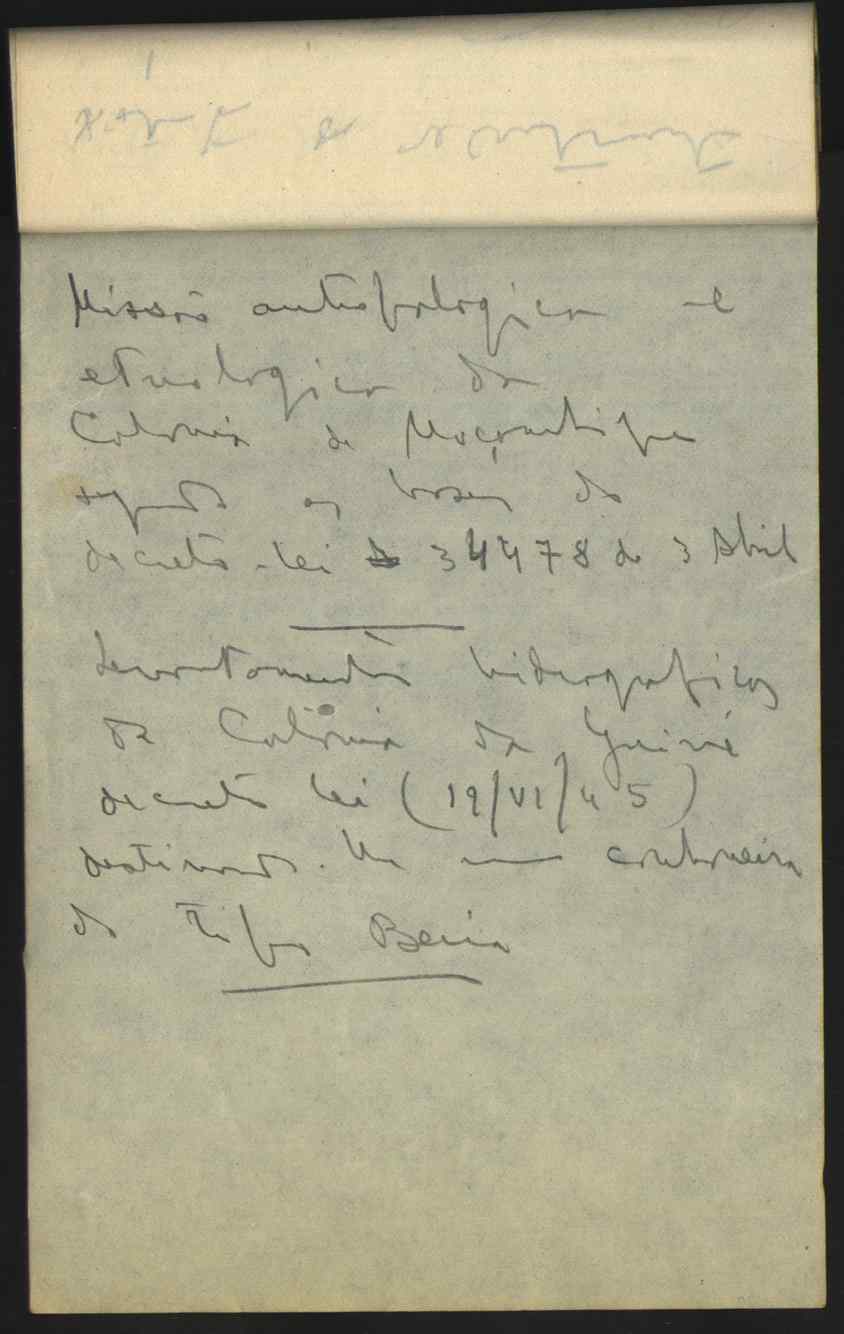 Missão antropologica e
etnologica da
Colonia de Moçambique
segundo as bases do
decreto-lei 34478 de 3 Abril
Levantamentos hidrograficos
da Colónia da Guiné
decreto lei (19/VI/45)
destinando-lhe uma canhoneira
do tipo Beira